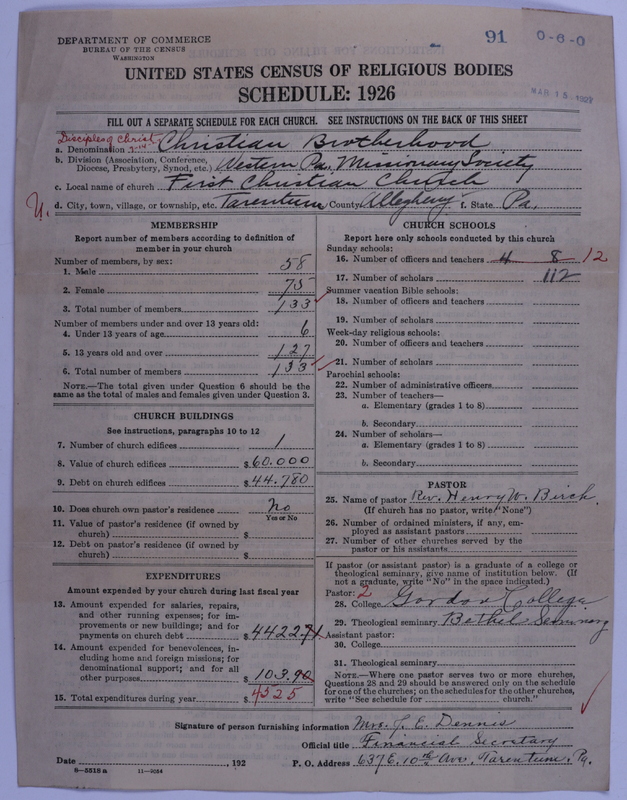 DEPARTMENT OF COMMERCE
BUREAU OF THE CENSUS
WASHINGTON
91
0-6-0
MAR 15 1927
UNITED STATES CENSUS OF RELIGIOUS BODIES
SCHEDULE: 1926
FILL OUT A SEPARATE SCHEDULE FOR EACH CHURCH. SEE INSTRUCTIONS ON THE BACK OF THIS SHEET
Disciples of Christ
a. Denomination Christian Brotherhood
b. Division (Association, Conference, Diocese, Presbytery, Synod, etc.) Western Pa. Missionary Society
c. Local name of church First Christian Church
d. City, town, village, or township, etc. Tarentum County Allegheny f. State Pa.
U.
MEMBERSHIP
Report number of members according to definition of
member in your church
Number of members, by sex:
1. Male 58
2. Female 75
3. Total number of members 133
Number of members under and over 13 years old:
4. Under 13 years of age 6
5. 13 years old and over 127
6. Total number of members 133
NOTE.—The total given under Question 6 should be the
same as the total of males and females given under Question 3.
CHURCH BUILDINGS
See instructions, paragraphs 10 to 12
7. Number of church edifices 1
8. Value of church edifices $60.000
9. Debt on church edifices $44.780
10. Does church own pastor's residence No
Yes or No
11. Value of pastor's residence (if owned by
church) $
12. Debt on pastor's residence (if owned by
church) $
EXPENDITURES
Amount expended by your church during last fiscal year
13. Amount expended for salaries, repairs,
and other running expenses; for im-
provements or new buildings; and for
payments on church debt $4422
14. Amount expended for benevolences, in-
cluding home and foreign missions; for
denominational support; and for all
other purposes $103.90
15. Total expenditures during year $4525
CHURCH SCHOOLS
Report here only schools conducted by this church
Sunday schools:
16. Number of officers and teachers 4 8 12
17. Number of scholars 112
Summer vacation Bible schools:
18. Number of officers and teachers
19. Number of scholars
Week-day religious schools:
20. Number of officers and teachers
21. Number of scholars
Parochial schools:
22. Number of administrative officers
23. Number of teachers—
a. Elementary (grades 1 to 8)
b. Secondary
24. Number of scholars—
a. Elementary (grades 1 to 8)
b. Secondary
PASTOR
25. Name of pastor Rev. Henry W. Birch
(If church has no pastor, write "None")
26. Number of ordained ministers, if any, em-
ployed as assistant pastors
27. Number of other churches served by the
pastor or his assistants
If pastor (or assistant pastor) is a graduate of a college or
theological seminary, give name of institution below. (If
not a graduate, write "No" in the space indicated.)
Pastor: 2
28. College Gordon College
29. Theological seminary Bethel Seminary
Assistant pastor:
30. College
31. Theological seminary
NOTE.—Where one pastor serves two or more churches,
Questions 28 and 29 should be answered only on the schedule
for one of the churches; on the schedules for the other churches,
write "See schedule for church."
Signature of person furnishing information Mrs. J. E. Dennis
Official title Financial Secretary
Date , 192 P. O. Address 637E. 10th Ave, Tarentum, Pa.
8—5518 a 11—9264